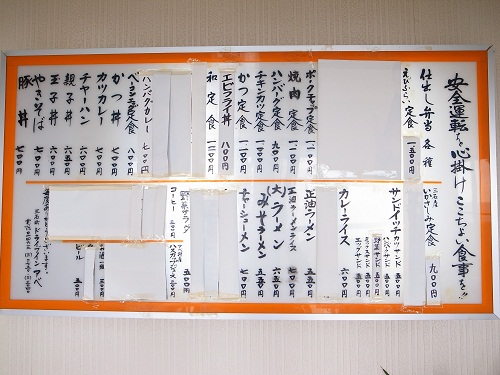 安全運転を心掛けここちよい食事を!!
仕出し弁当各種
えびふらい定食 一五〇〇円
ポークチャップ定食 一二〇〇円
焼肉定食 一二〇〇円
ハンバーグ定食 九〇〇円
チキンカツ定食 一二〇〇円
かつ定食 一二〇〇円
エビフライ丼
和定食 一二〇〇円
ハンバーグカレー 七〇〇円
ベーコンエッグ定食 八〇〇円
かつ丼 八〇〇円
カツカレー 八〇〇円
チャーハン 六〇〇円
親子丼 六五〇円
玉子丼 六〇〇円
やきそば 七〇〇円
豚丼 七〇〇円
いかさしみ定食 九〇〇円
サンドイッチ
カツサンド 五五〇円
ハムサンド
野菜サンド
エッグサンド
カレーライス 六〇〇円
正油ラーメン 五五〇円
正油ラーメンライス 七〇〇円
(大)ラーメン 六五〇円
(み)そラーメン 五五〇円
チャーシューメン 七〇〇円
野菜サラダ 五〇〇円
コーヒー 三〇〇円
ビール 五〇〇円
毎度ありがとうございます。
ドライブイン アベ